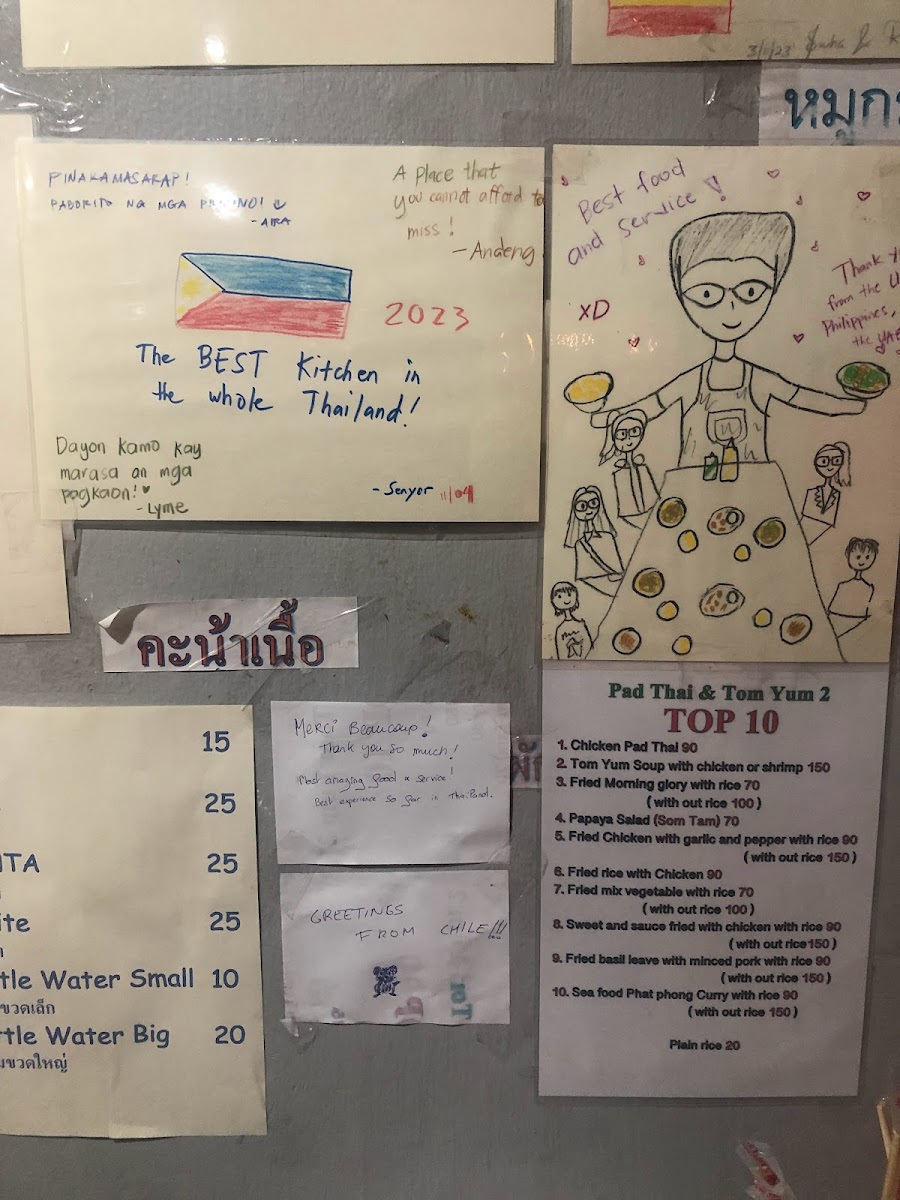 3/11/23
หมูก
PINAKAMASARAP!
PABORITO NG MGA
- AIRA
A place that
you cannot afford to
miss!
- Andeng
2023
The BEST Kitchen in
the whole Thailand!
Dayon kamo kay
marasa an mga
pagkaon!
- Lyme
- Senyor 11/04
Best food
and service!
xD
Thank
from the
Philippines,
the UAE
คะน้าเนื้อ
15
25
ITA 25
ite 25
tle Water Small 10
ขวดเล็ก
ttle Water Big 20
ขวดใหญ่
Merci Beaucoup!
Thank you so much!
Most amazing food & service!
Best experience so far in Thailand.
GREETINGS
FROM CHILE!!!
Pad Thai & Tom Yum 2
TOP 10
1. Chicken Pad Thai 90
2. Tom Yum Soup with chicken or shrimp 150
3. Fried Morning glory with rice 70
( with out rice 100 )
4. Papaya Salad (Som Tam) 70
5. Fried Chicken with garlic and pepper with rice 90
( with out rice 150 )
6. Fried rice with Chicken 90
7. Fried mix vegetable with rice 70
( with out rice 100 )
8. Sweet and sauce fried with chicken with rice 90
( with out rice150 )
9. Fried basil leave with minced pork with rice 90
( with out rice 150 )
10. Sea food Phat phong Curry with rice 90
( with out rice 150 )
Plain rice 20